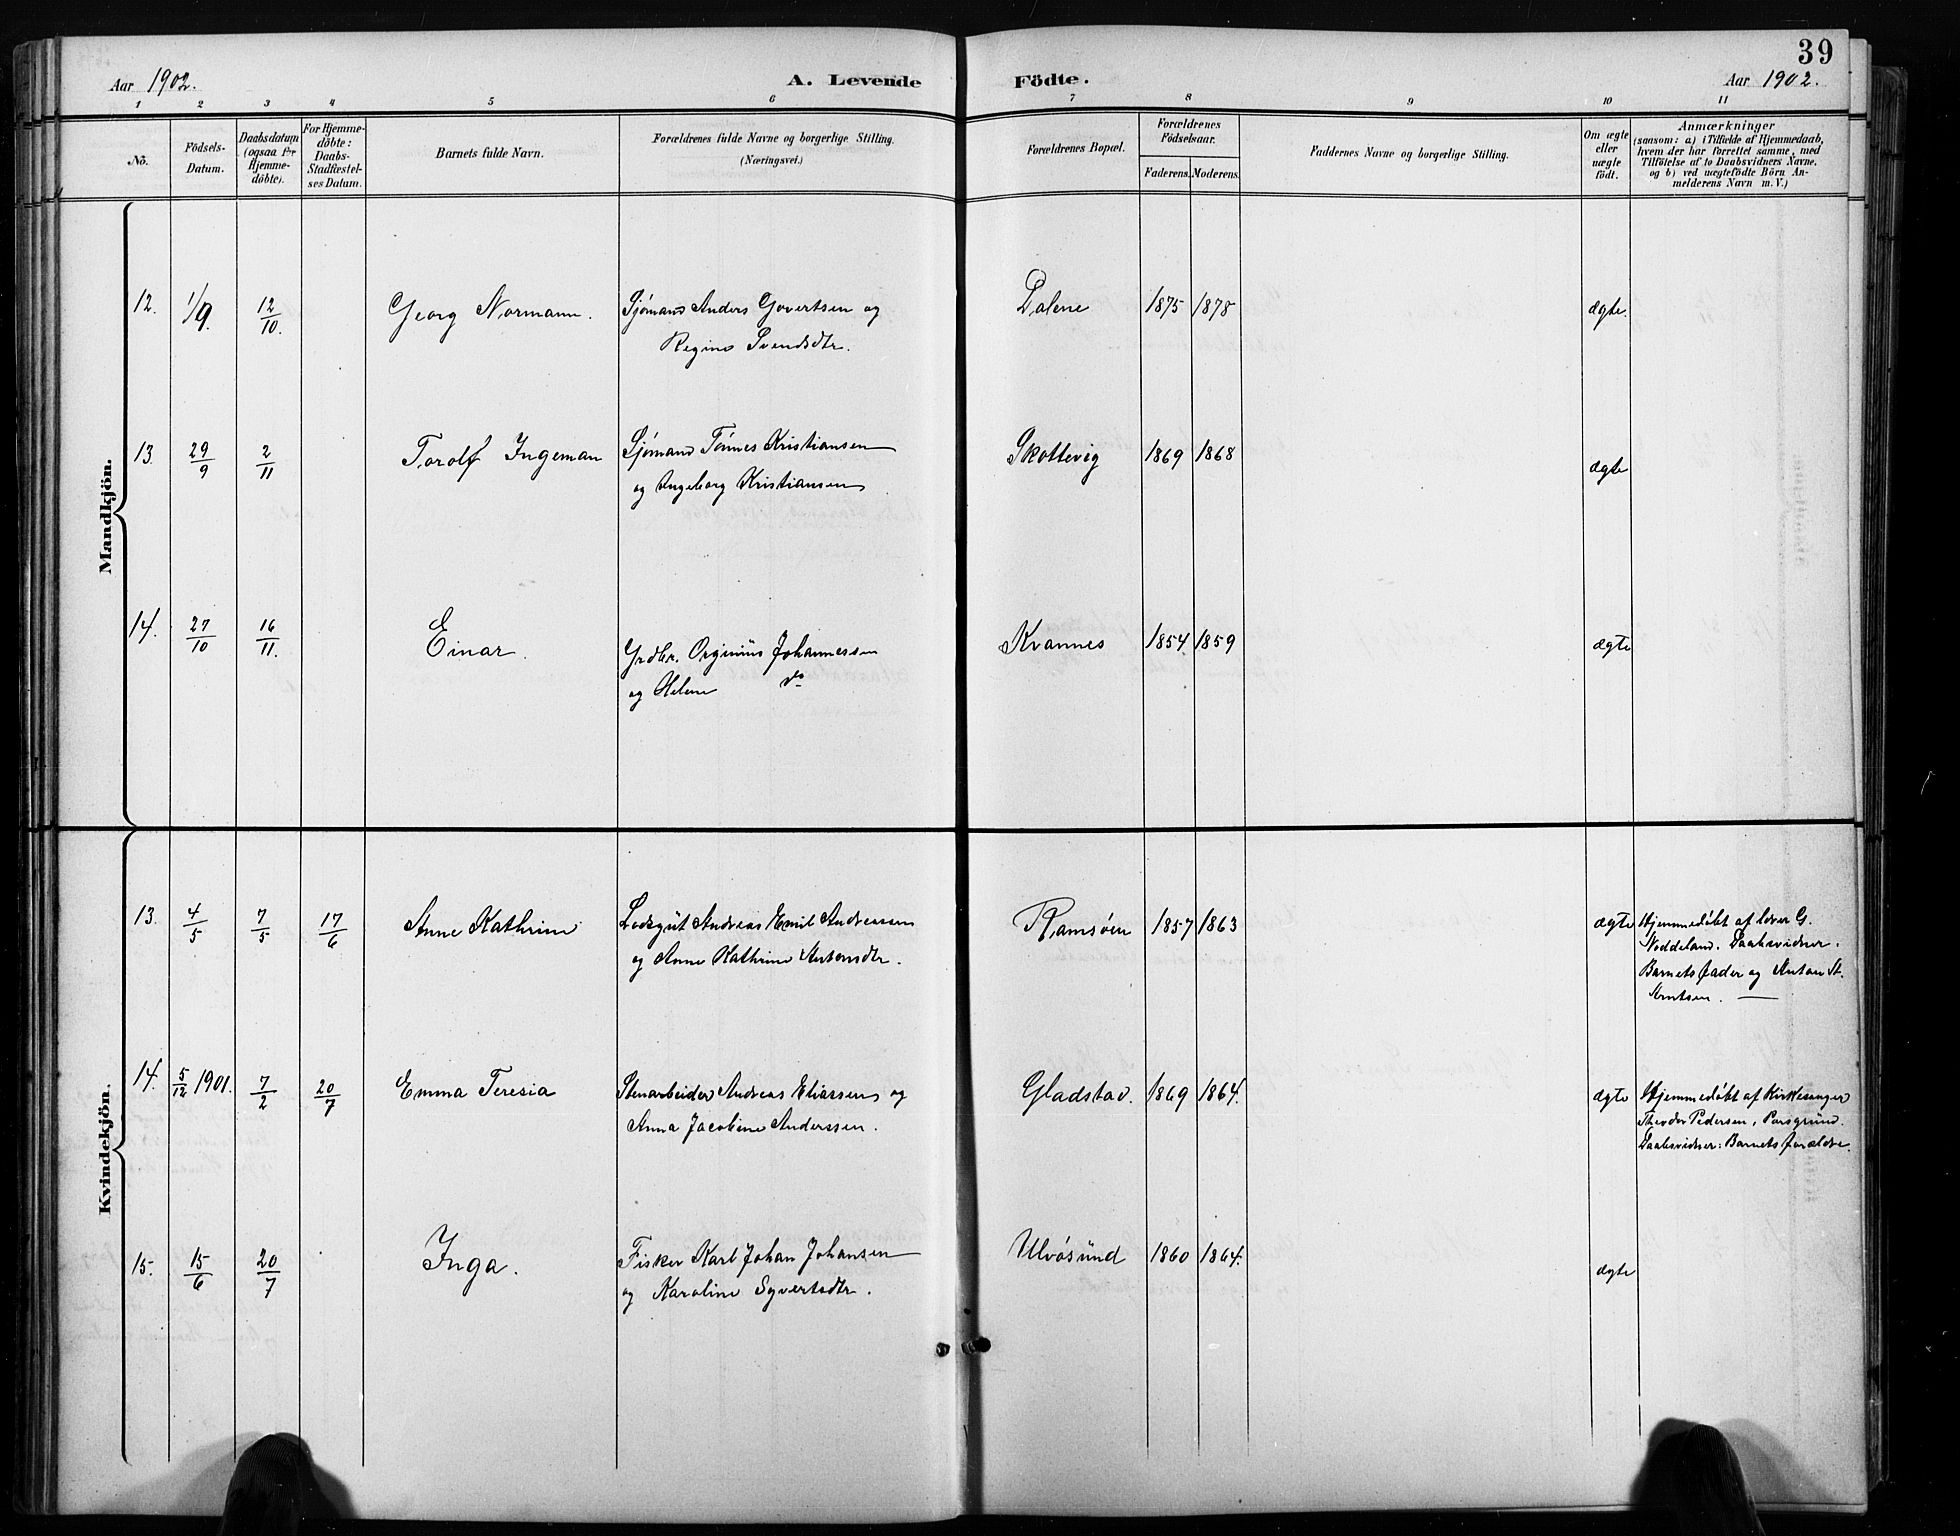 39
Aar 1902.
A. Levende Födte.
Aar 1902.
1 2 3 4 5 6 7 8 9 10 11
No.
Födsels-Datum.
Daabsdatum (ogsaa for Hjemme-döbte).
For Hjemme-döbte: Daabs-Stadfæstel-ses Datum.
Barnets fulde Navn.
Forældrenes fulde Navne og borgerlige Stilling.
(Næringsvei.)
Forældrenes Bopæl.
Forældrenes Födselsaar.
Faderens. Moderens.
Faddernes Navne og borgerlige Stilling.
Om ægte eller uægte födt.
Anmærkninger
(saasom: a) i Tilfælde af Hjemmedaab,
hvem der har forrettet samme, med
Tilföielse af to Daabsvidners Navne,
og b) ved uægtefödte Börn An-
melderens Navn m. V.)
Mandkjön.
12. 1/9. 12/10. Georg Normann. Sjømand Anders Govertsen og Dalene 1875 1878 ægte.
Regine Svendsdtr.
13. 29/9 2/11 Torolf Ingeman Sjømand Tønnes Kristiansen Skottevig 1869 1868 ægte
og Ingeborg Kristiansen
14. 27/10 16/11. Einar. Grdbr. Johannessen Kvannes 1854 1859 ægte
og Helene do
Kvindekjön.
13. 4/5 7/5 17/6 Anne Kathrine Lodsgut Andreas Emil Andreassen Ramsøen 1857 1863 ægte Hjemmedøbt af lærer G.
og Anne Kathrine Antonsdtr. Noddeland. Daabsvidner:
Barnets fader og Anton St.
Arntsen. —
14. 5/12 1901. 7/2 20/7 Emma Teresia Stenarbeider Andreas Eliassen og Gladstad. 1869 1864. ægte Hjemmedøbt af Kirkesanger
Anna Jacobine Anderssen. Theodor Pedersen, Porsgrund.
Daabsvidner: Barnets forældre.
15. 15/6 20/7 Inga. Fisker Karl Johan Johansen Ulvøsund 1860 1864. ægte
og Karoline Syvertsdtr.